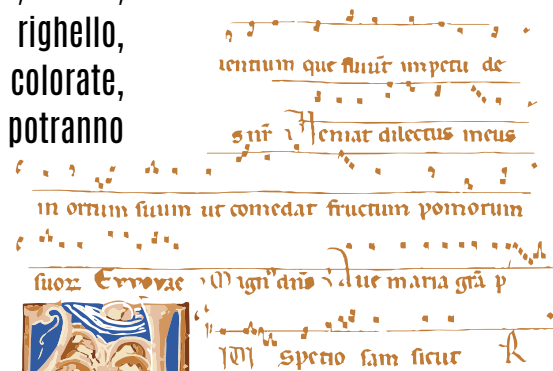 righello,
colorate,
potranno
ientium que fluūt impetu de
Veniat dilectus meus
in ortum suum ut comedat fructum pomorum
suoꝝ Evovae Magn
Aue maria grā p
Spetio sam sicut R